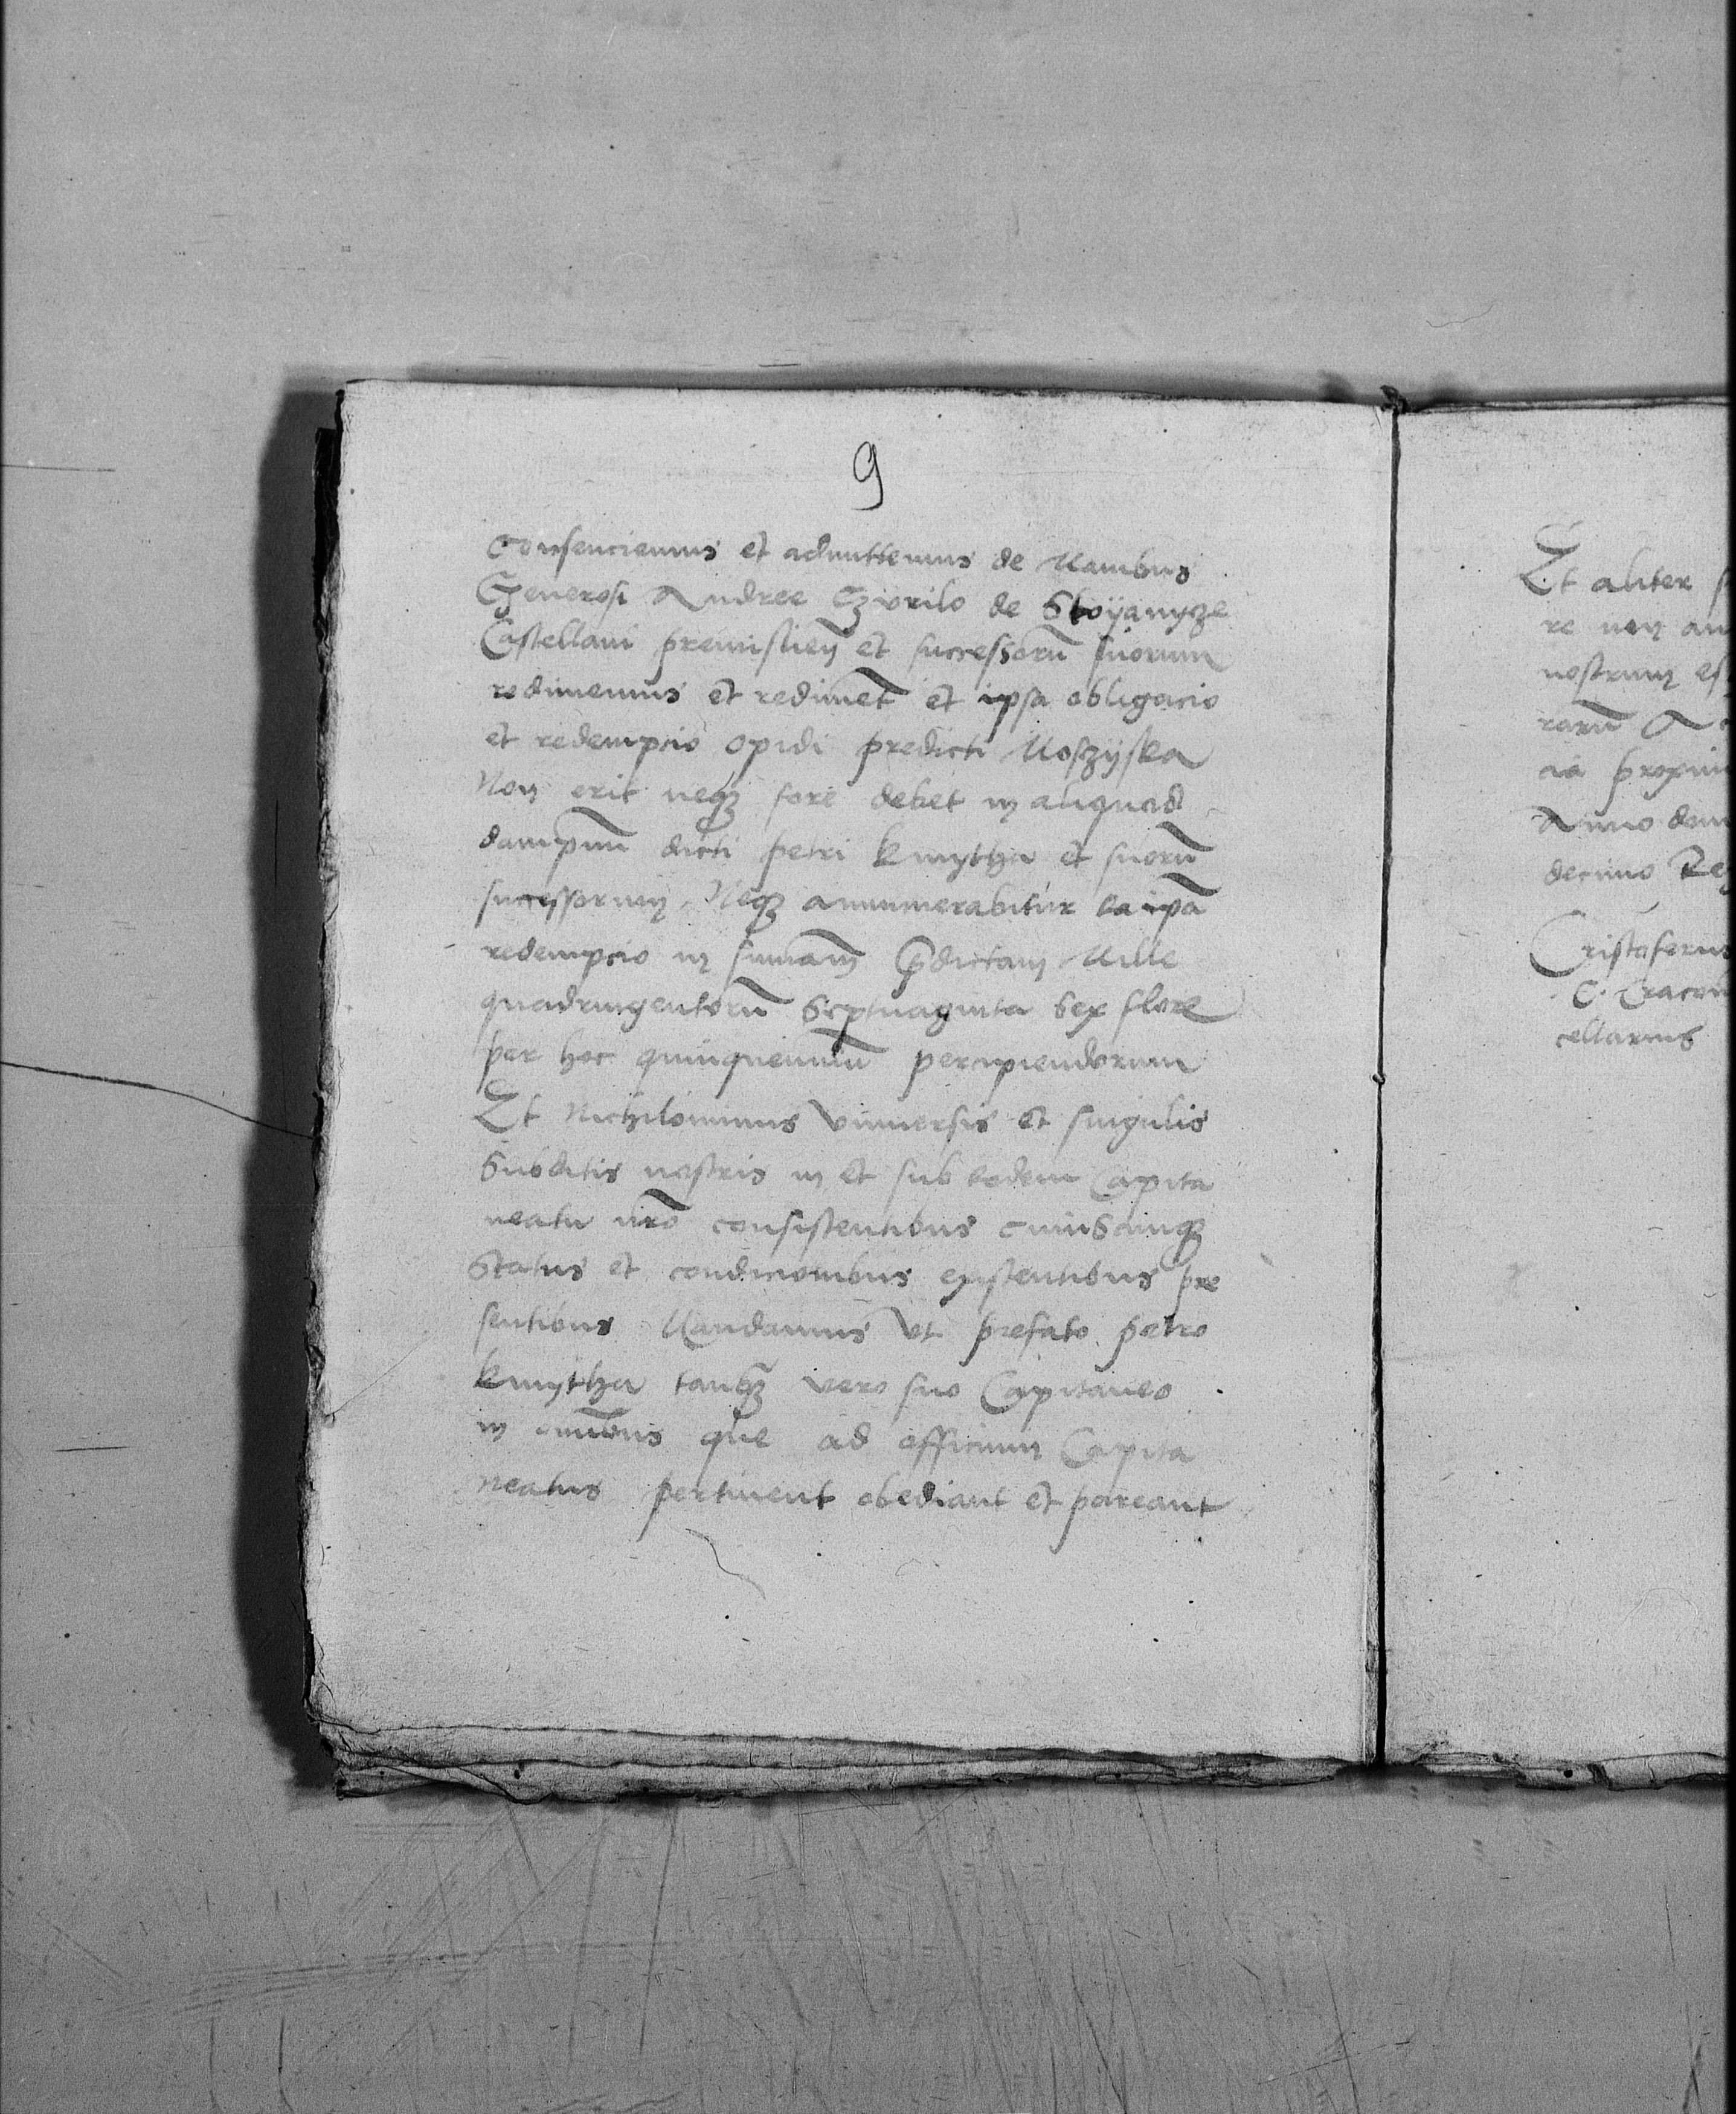 9
Consenciemus et admittemus de Manibus
Generosi Andree Czvrilo de Stoyanycze
Castellani premislien et successoru̅ suorum
redimemus et redimet et ipsa obligacio
et redempcio opidi predicti Mosczyska
Non erit neqz fore debet in aliquod
dampnu̅ dicti petri kmytha et suoru̅
successorum Neqz annumerabitur ea ip̅a
redempcio in summam p̅dictam Mille
quadringentoru̅ Septuaginta Sex flore
per hoc quinquenniu̅ percipiendorum
Et Nichilominus vniuersis et singulis
Subditis nostris in et sub eodem Capita
neatu nr̅o consistentibus cuiuscumqz
Status et condicionibus existentibus pre
sentibus Mandamus vt prefato petro
kmytha tanqz vero suo Capitaneo
in omībus que ad officium Capita
neatus pertinent obediant et pareant
Et aliter
re non
nostrum
raru̅
cia
Anno
decimo
Cristoferus
C.
cellarius